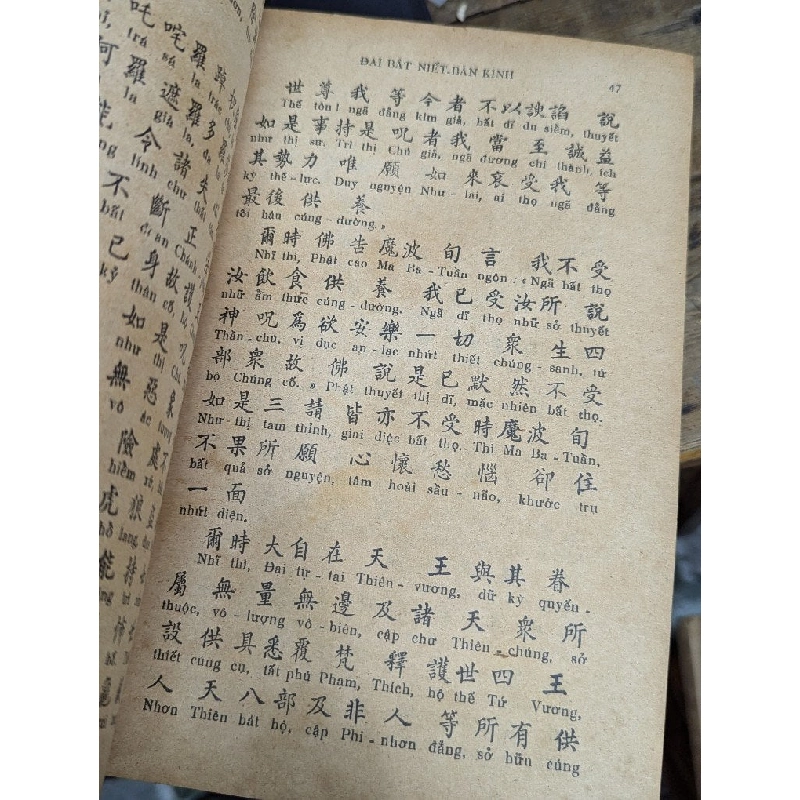 ĐẠI BÁT NIẾT-BÀN KINH
47
世尊我等今者不以諛諂說
Thế tôn! ngã đẳng kim giả, bất dĩ du siểm, thuyết
如是事持是呪者我當至誠益
như thị sự. Trì thị Chú giả, ngã đương chí thành, ích
其勢力唯願如來哀受我等
kỳ thế-lực. Duy nguyện Như-lai, ai thọ ngã đẳng
最後供養
tối hậu cúng-dường.,
爾時佛告魔波旬言我不受
Nhĩ thì, Phật cáo Ma Ba-Tuần ngôn: «Ngã bất thọ
汝飲食供養我已受汝所說
nhữ ẩm thức cúng-dường. Ngã dĩ thọ nhữ sở thuyết
神呪為欲安樂一切眾生四
Thần-chú, vị dục an-lạc nhứt thiết chúng-sanh, tứ
部眾故佛說是已默然不受
bộ Chúng cố.» Phật thuyết thị dĩ, mặc nhiên bất thọ.
如是三請皆亦不受時魔波旬
Như-thị tam thỉnh, giai diệc bất thọ. Thì Ma Ba-Tuần,
不果所願心懷愁惱卻住
bất quả sở nguyện, tâm hoài sầu-não, khước trụ
一面
nhứt diện.
爾時大自在天王與其眷
Nhĩ thì, Đại tự-tại Thiên-vương, dữ kỳ quyến-
屬無量無邊及諸天眾所
thuộc, vô-lượng vô-biên, cập chư Thiên-chúng, sở
設供具悉覆梵釋護世四王
thiết cung cụ, tất phú Phạm, Thích, hộ thế Tứ Vương,
人天八部及非人等所有供
Nhơn Thiên bát bộ, cập Phi-nhơn đẳng, sở hữu cúng